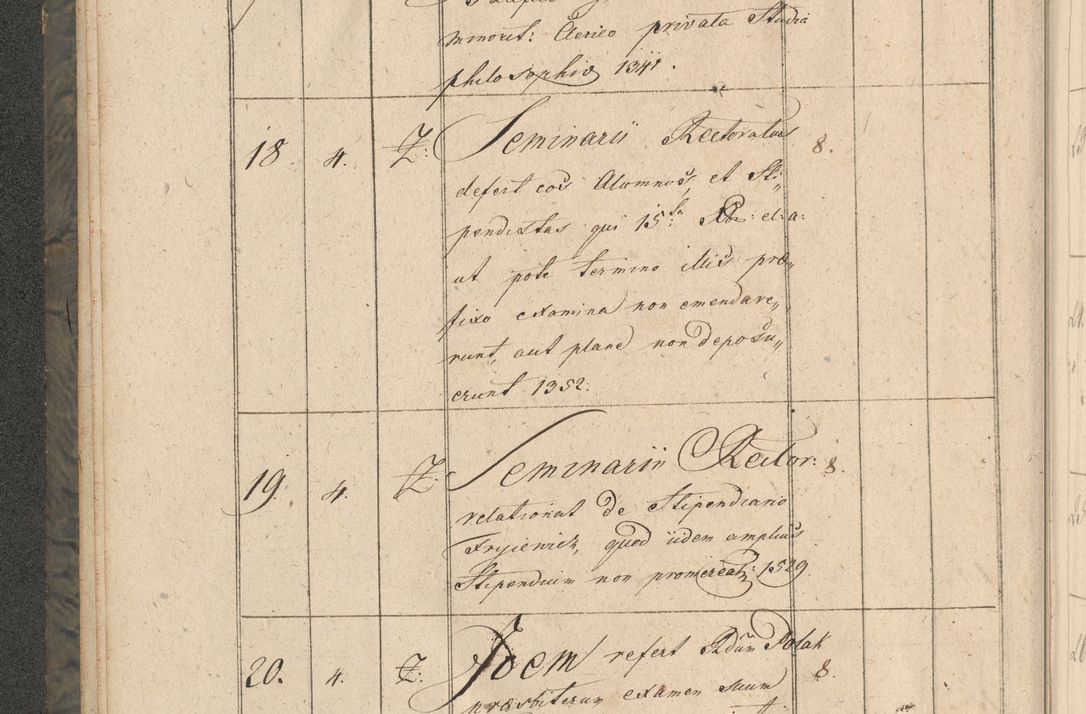 minorit: Clerico privata Studia
philosophia 1341.
18. 4. Z: Seminarii Rectoratus 8.
defert eos Alumnos, et Sti„
pendistas qui 15ta Xbr: el: a:
ut pote termino illis præ„
fixo examina non emendave„
runt, aut plane non deposu„
erunt 1352.
19. 4. Z: Seminarii Rector: 8.
relationat de Stipendiario
Fryiewicz, quod iidem amplius
Stipendium non promereat: 1529
20. 4. Z: Idem refert Rdum Polak 8.
præsbiterum examen suum